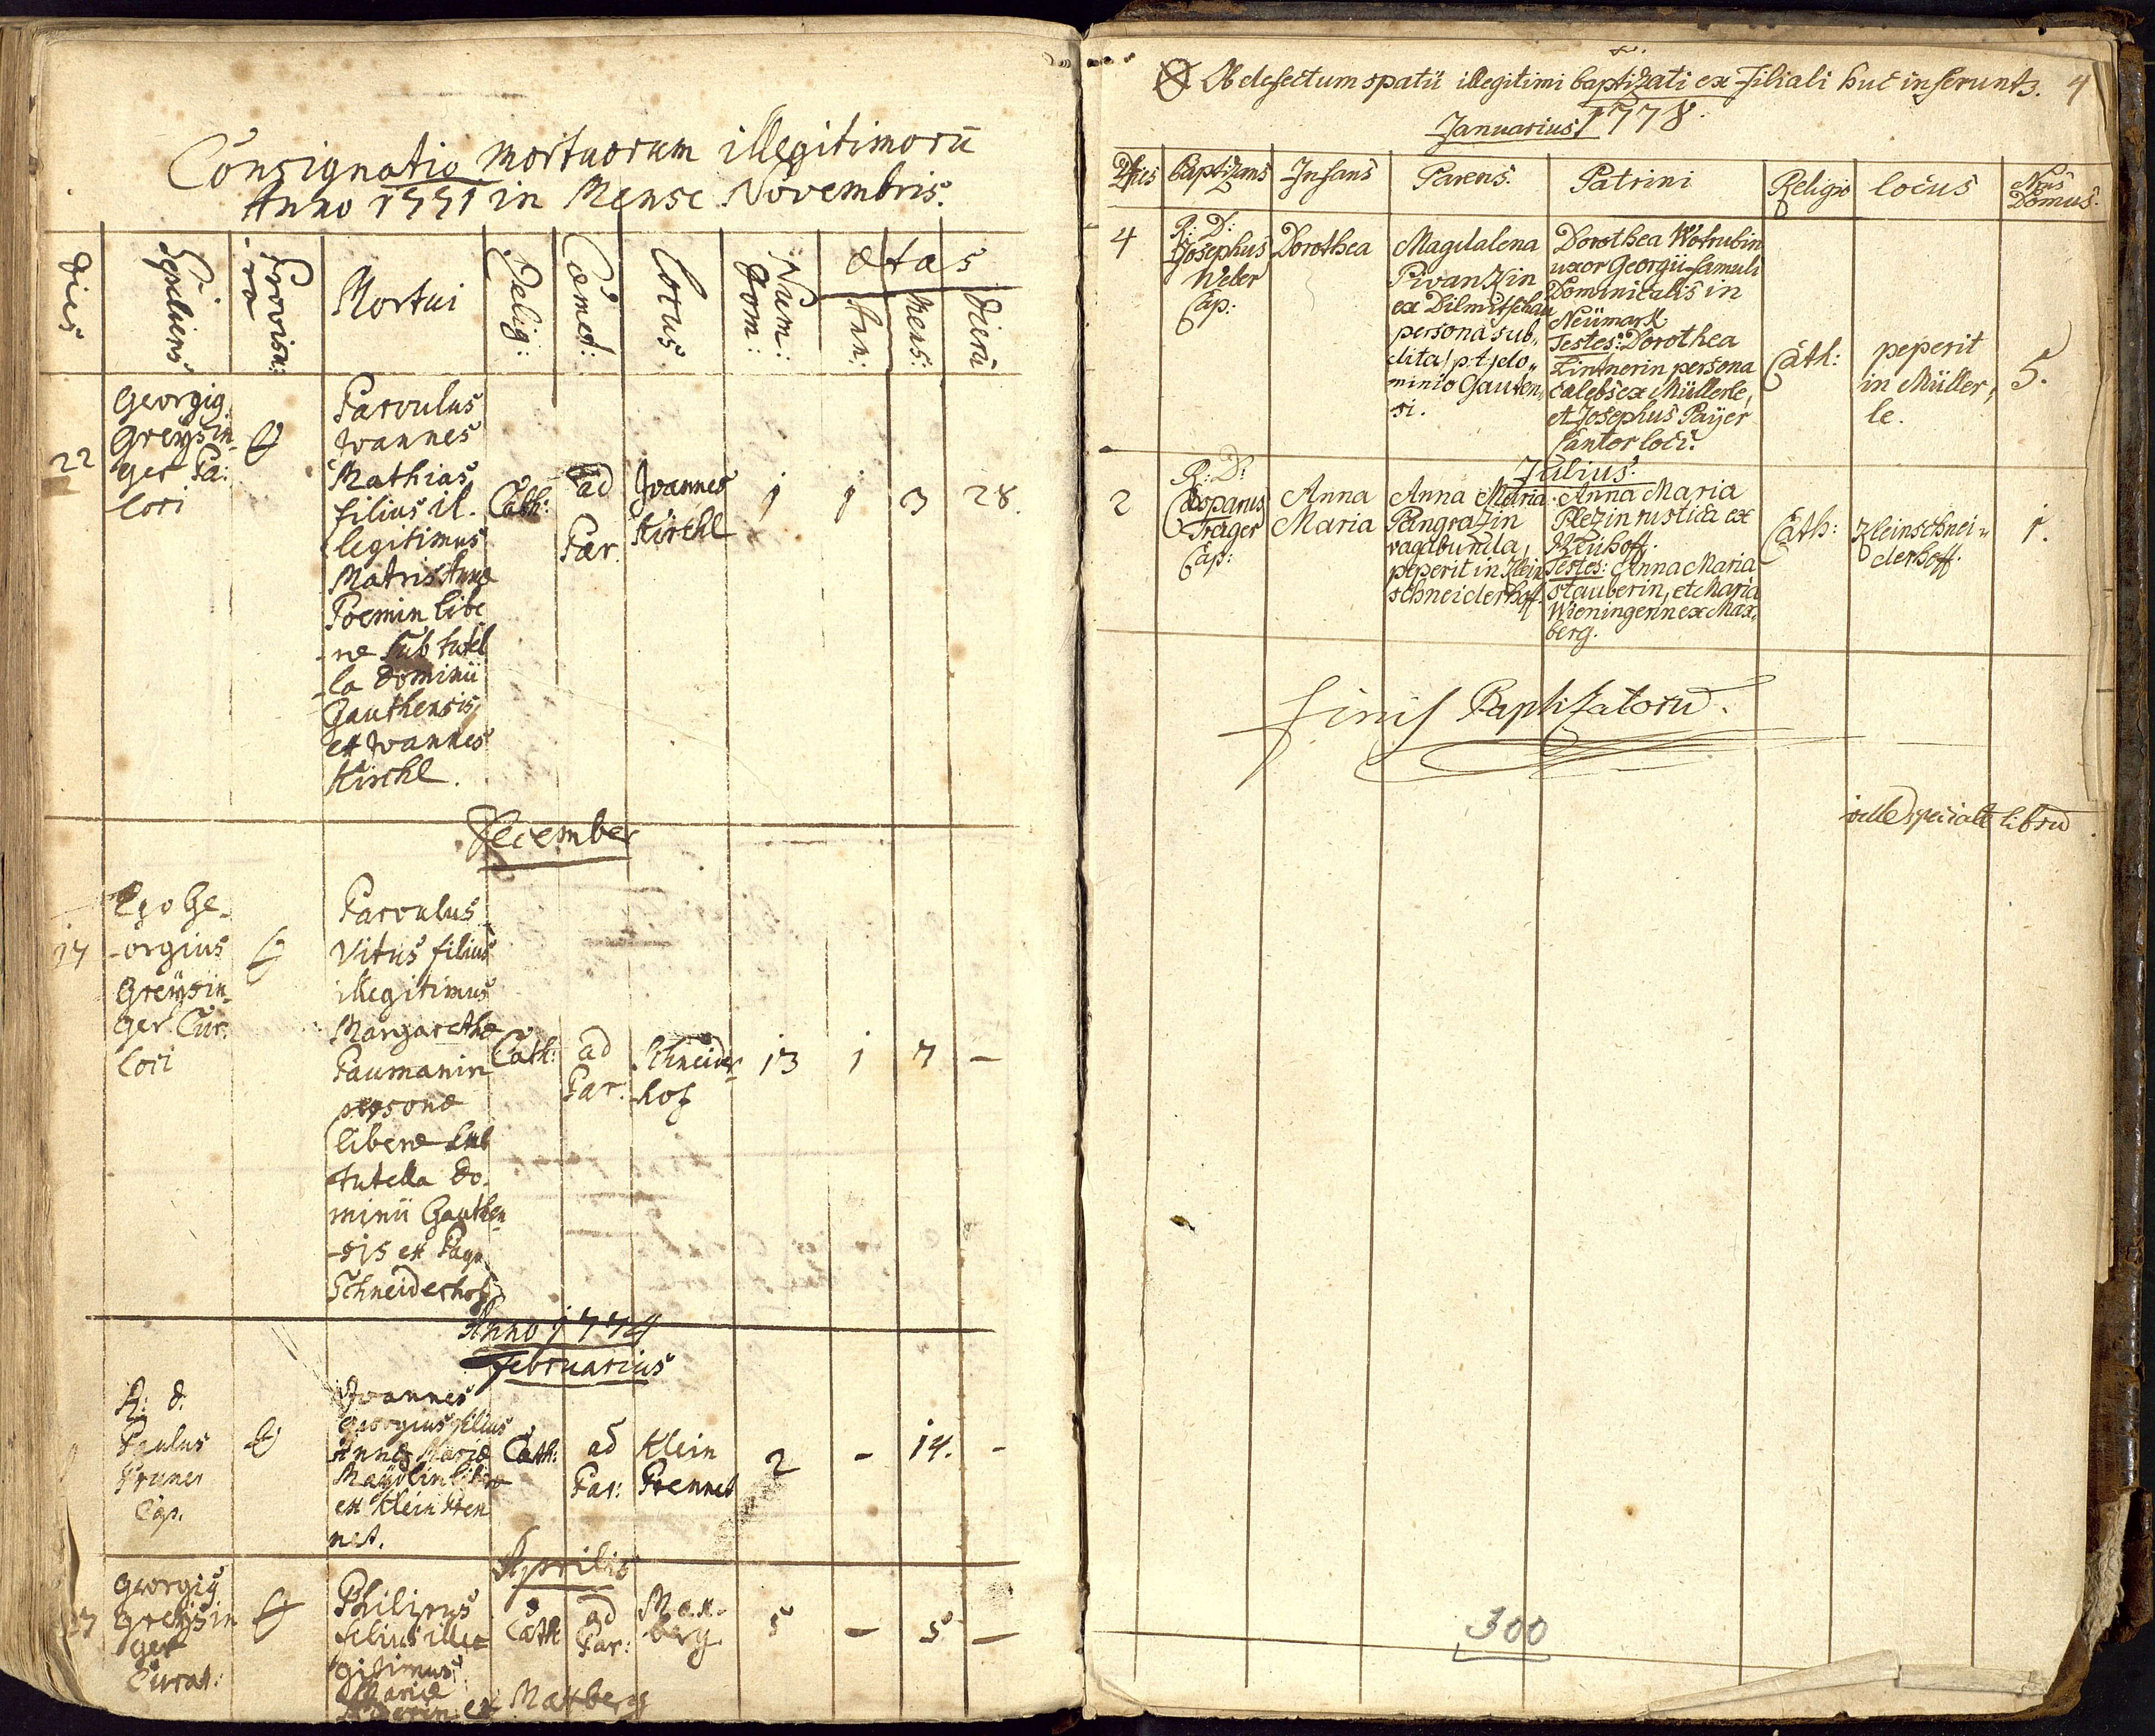 Consignatio Mortuorum illegitimorū
Anno 1771 in Mense Novembris.
Dies
Sepeliens
Provisus
Mortui
Relig:
Cæmet:
Locus
Num: Dom:
Ætas
Ann:
Mens:
Dierū
22
Georgiq
Greÿsin
ger Pa:
loci
Parvulus
Joannes
Mathias
filius il-
legitimus
Matris Annæ
Poemin libe
-ræ sub tutel
-la Dominii
Gauthensis,
ex Joannes
Kirchl.
Cath:
ad
Par.
Joannes
Kirchl
1
1
3
28.
December
17
Ego Ge-
-orgius
Greÿsin-
ger Cur:
loci
Parvulus
Vitus filius
illegitimus
Margarethæ
Paumanin
personæ
liberæ sub
tutella Do-
minii Gauthen
-sis ex Pago
Schneiderhof
Cath:
ad
Par.
Schneider-
hof
13
1
7
-
Anno 1774
Februarius
R: D:
Paulus
Pruner
Cap.
Joannes
Georgius filius
Annæ Mariæ
Maÿdlin liberæ
ex Klein Pren
net.
Cath:
ad
Par:
Klein
Prennet
2
-
14.
-
Aprilis
Georgiq
Greÿsin
ger
Curat:
Philipus
filius ille
gitimus
Mariæ
ex Maxberg
Cath
ad
Par:
Max-
berg
5
-
5
-
Ob defectum spatii illegitimi baptizati ex Filiali huc inseruntr. 4
Januarius 1778.
Dies
Baptizans
Infans
Parens.
Patrini
Religio
Locus
Nrus Domus.
4
R: D:
Josephus
Weber
Cap:
Dorothea
Magdalena
Piwanzin
ex Dilmitschau
persona sub„
dita p. t. do„
minio Gauten„
si.
Dorothea Wotrubin
uxor Georgii famuli
Dominicalis in
Neümark.
Testes: Dorothea
Lintnerin persona
cælebs ex Müllerle,
et Josephus Paÿer
Cantor loci.
Cath:
peperit
in Müller„
le.
5.
Julius.
2
R: D:
Casparus
Trager
Cap:
Anna
Maria
Anna Maria
Pangrazin
vagabunda,
peperit in Klein
schneiderhoff
Anna Maria
Plezin rustica ex
Neühoff.
Testes: Anna Maria
Stauberin, et Maria
Wieningerin ex Max„
berg.
Cath:
Kleinschnei„
derhoff.
1.
Finis Baptizatorū.
vide speciale librū
300